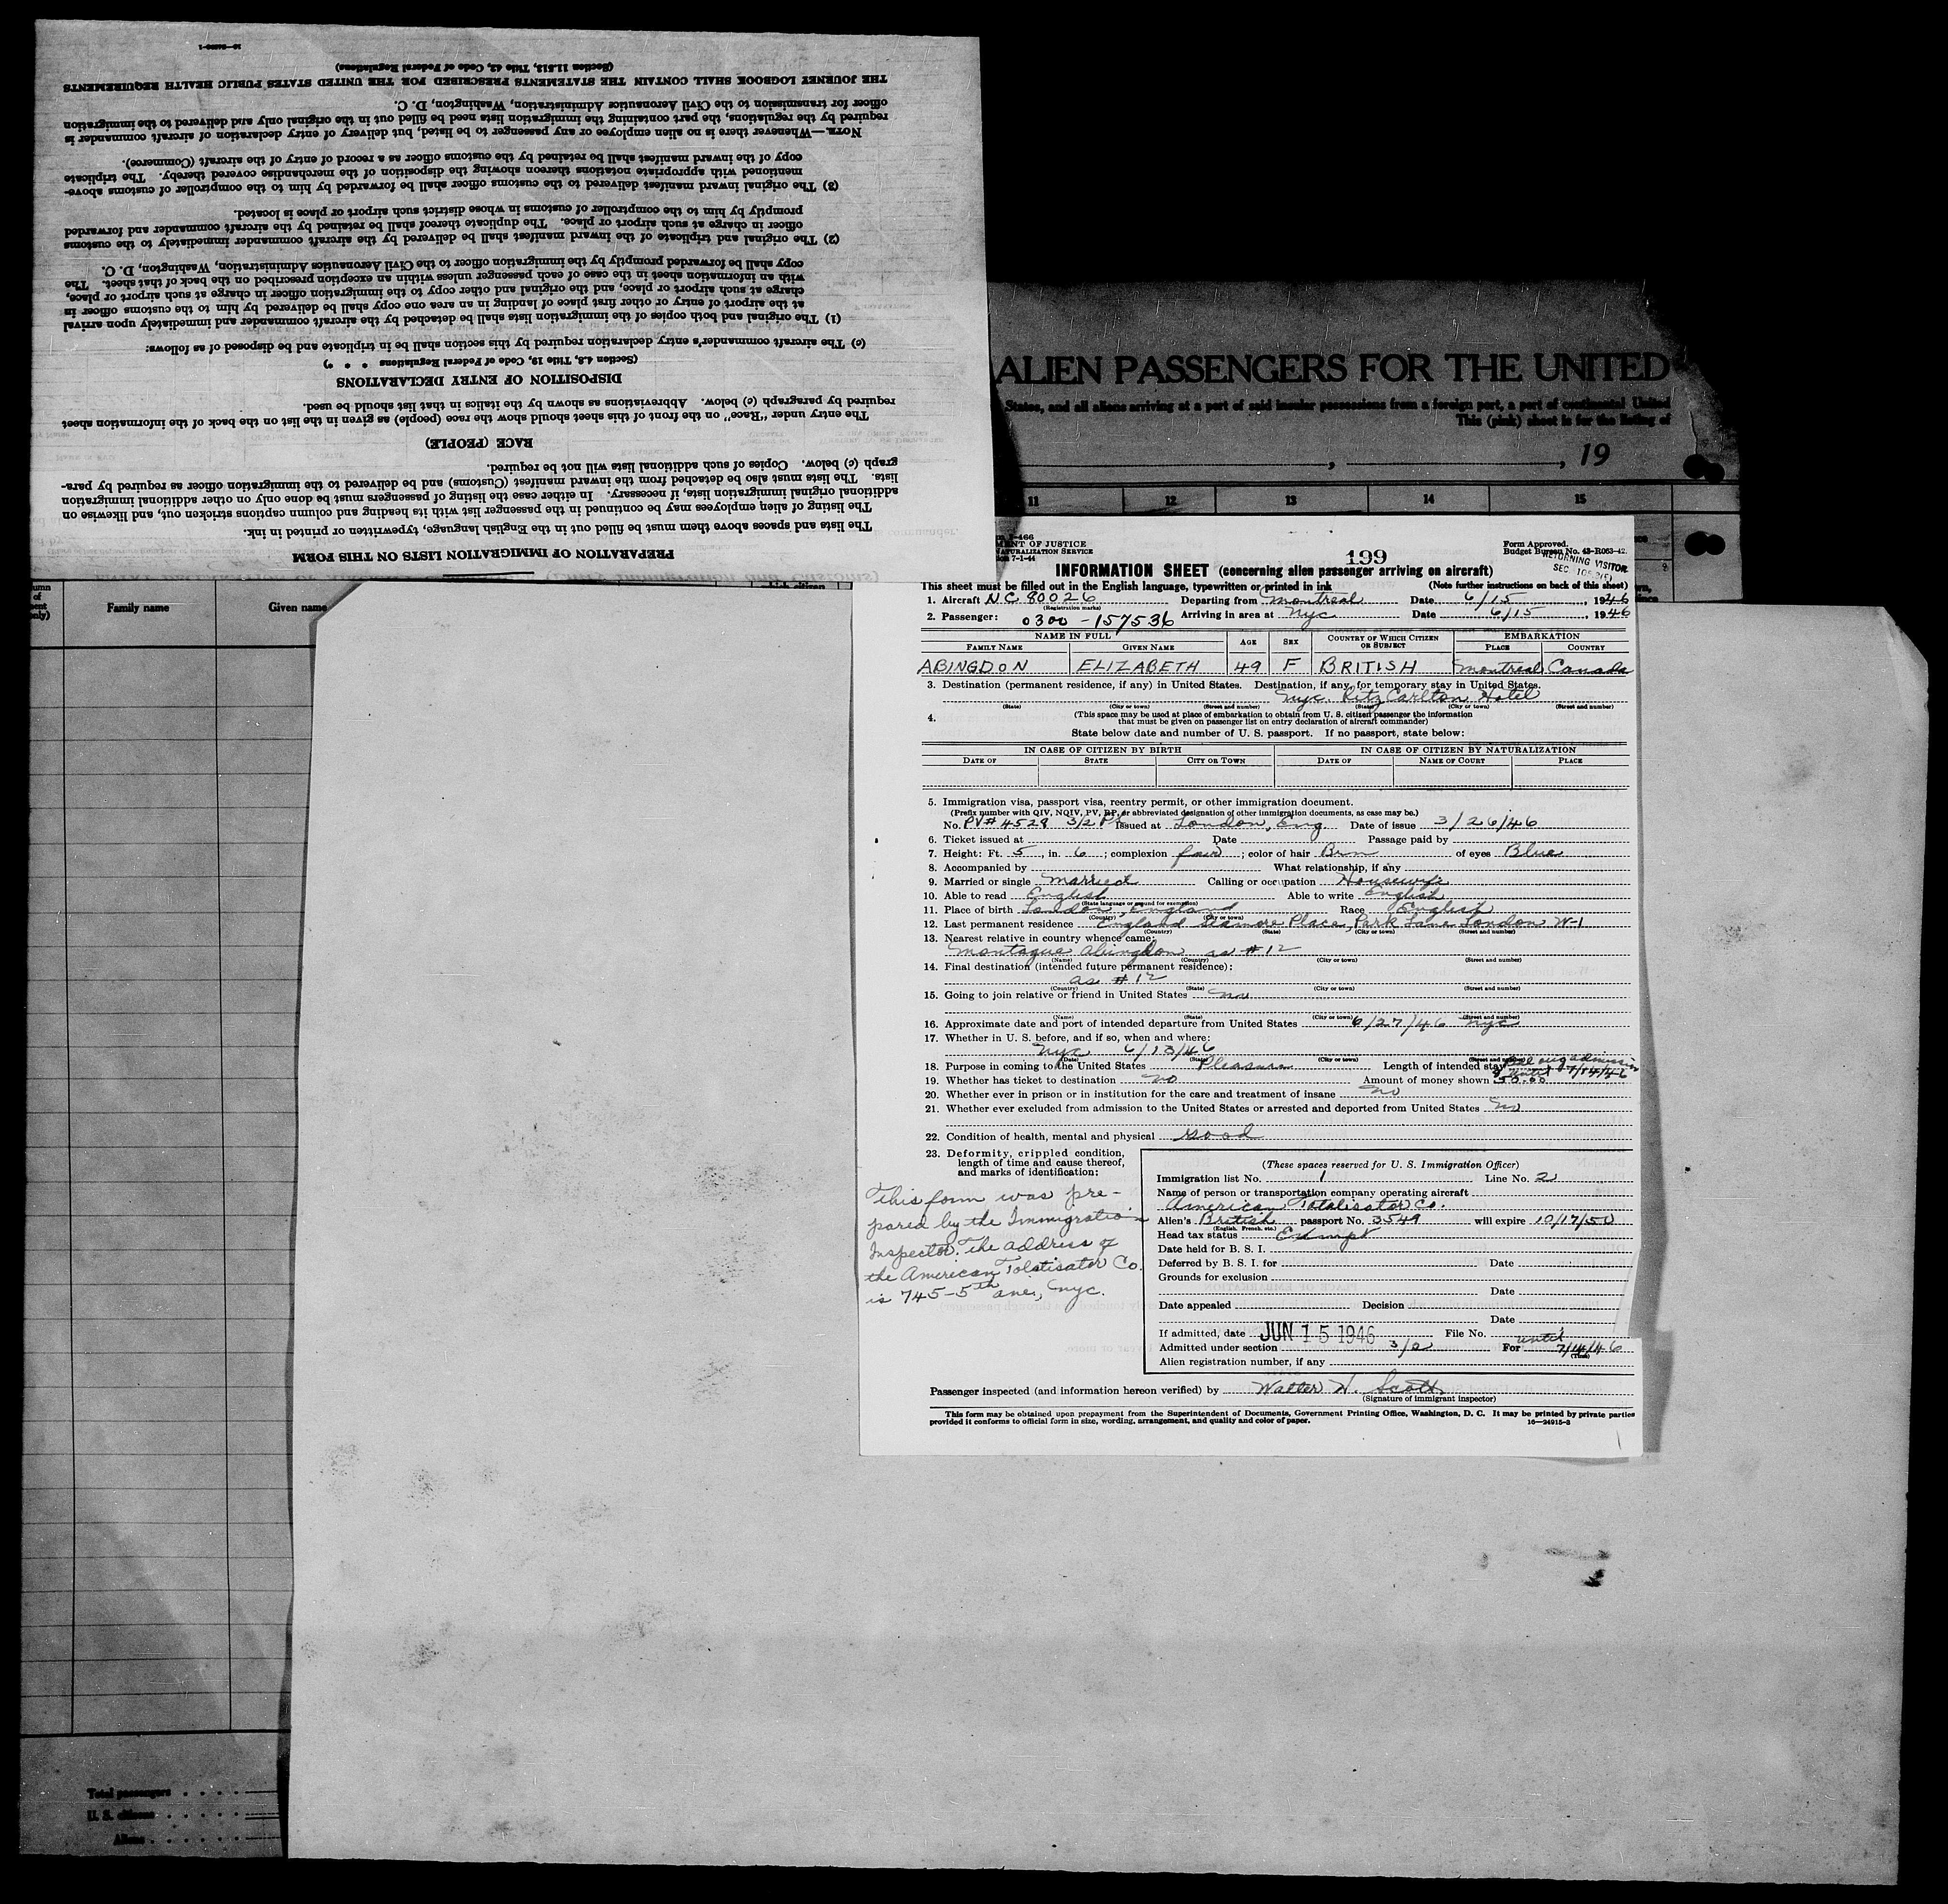 PREPARATION OF IMMIGRATION LISTS ON THIS FORM
The lists and spaces above them must be filled out in the English language, typewritten or printed in ink.
The listing of alien employees may be continued in the passenger list with its heading and column captions stricken out, and likewise on
additional original immigration lists, if necessary. In either case the listing of passengers must be done only on other additional immigration
lists. The lists must also be detached from the inward manifest (Customs) and be delivered to the immigration officer as required by para-
graph (c) below. Copies of such additional lists will not be required.
RACE (PEOPLE)
The entry under "Race" on the front of this sheet should show the race (people) as given in the list on the back of the information sheet
required by paragraph (c) below. Abbreviations as shown by the italics in that list should be used.
DISPOSITION OF ENTRY DECLARATIONS
(Section 4.8, Title 19, Code of Federal Regulations * * *)
(c) The aircraft commander's entry declaration required by this section shall be in triplicate and be disposed of as follows:
(1) The original and both copies of the immigration lists shall be detached by the aircraft commander and immediately upon arrival
at the airport of entry or other first place of landing in an area one copy shall be delivered by him to the customs officer in
charge at such airport or place, and the original and other copy to the immigration officer in charge at such airport or place,
with an information sheet in the case of each passenger unless within an exception prescribed on the back of that sheet. The
copy shall be forwarded promptly by the immigration officer to the Civil Aeronautics Administration, Washington, D. C.
(2) The original and triplicate of the inward manifest shall be delivered by the aircraft commander immediately to the customs
officer in charge at such airport or place. The duplicate thereof shall be retained by the aircraft commander and forwarded
promptly by him to the comptroller of customs in whose district such airport or place is located.
(3) The original inward manifest delivered to the customs officer shall be forwarded by him to the comptroller of customs above-
mentioned with appropriate notations thereon showing the disposition of the merchandise covered thereby. The triplicate
copy of the inward manifest shall be retained by the customs officer as a record of entry of the aircraft (Commerce).
NOTE.—Whenever there is no alien employee or any passenger to be listed, but delivery of entry declaration of aircraft commander is
required by the regulations, the part containing the immigration lists need be filled out in the original only and delivered to the immigration
officer for transmission to the Civil Aeronautics Administration, Washington, D. C.
THE JOURNEY LOGBOOK SHALL CONTAIN THE STATEMENTS PRESCRIBED FOR THE UNITED STATES PUBLIC HEALTH REQUIREMENTS
(Section 11.513, Title 42, Code of Federal Regulations)
ALIEN PASSENGERS FOR THE UNITED
States, and all aliens arriving at a port of said insular possessions from a foreign port, a port of continental United
This (pink) sheet is for the listing of
, , 19
11 12 13 14 15
Family name Given name
-466
MENT OF JUSTICE
NATURALIZATION SERVICE
7-1-44
199
Form Approved.
Budget Bureau No. 43-R063-42.
RETURNING VISITOR
INFORMATION SHEET (concerning alien passenger arriving on aircraft)
This sheet must be filled out in the English language, typewritten or printed in ink (Note further instructions on back of this sheet)
1. Aircraft NC 80026 Departing from Montreal Date 6/15, 1946
(Registration marks)
2. Passenger: 0300-157536 Arriving in area at NYC Date 6/15, 1946
NAME IN FULL AGE SEX COUNTRY OF WHICH CITIZEN OR SUBJECT EMBARKATION
FAMILY NAME GIVEN NAME PLACE COUNTRY
ABINGDON ELIZABETH 49 F BRITISH Montreal Canada
3. Destination (permanent residence, if any) in United States. Destination, if any, for temporary stay in United States.
NYC Ritz Carlton Hotel
(State) (City or town) (Street and number) (State) (City or town) (Street and number)
4. (This space may be used at place of embarkation to obtain from U. S. citizen passenger the information
that must be given on passenger list on entry declaration of aircraft commander)
State below date and number of U. S. passport. If no passport, state below:
IN CASE OF CITIZEN BY BIRTH IN CASE OF CITIZEN BY NATURALIZATION
DATE OF STATE CITY OR TOWN DATE OF NAME OF COURT PLACE
5. Immigration visa, passport visa, reentry permit, or other immigration document.
(Prefix number with QIV, NQIV, PV, RP, or abbreviated designation of other immigration documents, as case may be.)
No. PV# 4528 3/2 Issued at London, Eng. Date of issue 3/26/46
6. Ticket issued at Date Passage paid by
7. Height: Ft. 5, in. 6; complexion fair; color of hair Brn of eyes Blue
8. Accompanied by What relationship, if any
9. Married or single married Calling or occupation Housewife
10. Able to read English Able to write English
(State language or ground for exemption)
11. Place of birth London, England Race English
(Country) (City or town)
12. Last permanent residence England Place, Park Lane London W-1
(Country) (State) (City or town) (Street and number)
13. Nearest relative in country whence came:
Montague Abingdon as #12
(Name) (Country) (City or town) (Street and number)
14. Final destination (intended future permanent residence):
as #12
(Country) (State) (City or town) (Street and number)
15. Going to join relative or friend in United States no
(Name) (State) (City or town) (Street and number)
16. Approximate date and port of intended departure from United States 6/27/46 NYC
17. Whether in U. S. before, and if so, when and where:
NYC 6/13/46
(Date) (State) (City or town) (Street and number)
18. Purpose in coming to the United States Pleasure Length of intended stay until 7/14/46
19. Whether has ticket to destination no Amount of money shown 50.00
20. Whether ever in prison or in institution for the care and treatment of insane no
21. Whether ever excluded from admission to the United States or arrested and deported from United States no
22. Condition of health, mental and physical good
23. Deformity, crippled condition,
length of time and cause thereof,
and marks of identification:
This form was pre-
pared by the Immigration
Inspector. The address of
the American Totalisator Co.
is 745-5th ave., NYC.
(These spaces reserved for U. S. Immigration Officer)
Immigration list No. 1 Line No. 2
Name of person or transportation company operating aircraft
American Totalisator Co.
Alien's British passport No. 3549 will expire 10/17/50
(English, French, etc.)
Head tax status Exempt
Date held for B. S. I.
Deferred by B. S. I. for Date
Grounds for exclusion
Date
Date appealed Decision
Date
If admitted, date JUN 15 1946 File No.
Admitted under section 3/2 For until 7/14/46
(Time)
Alien registration number, if any
Passenger inspected (and information hereon verified) by Walter W. Scott
(Signature of immigrant inspector)
This form may be obtained upon prepayment from the Superintendent of Documents, Government Printing Office, Washington, D. C. It may be printed by private parties
provided it conforms to official form in size, wording, arrangement, and quality and color of paper. 16—24915-2
Total passengers
U. S. citizens
Aliens